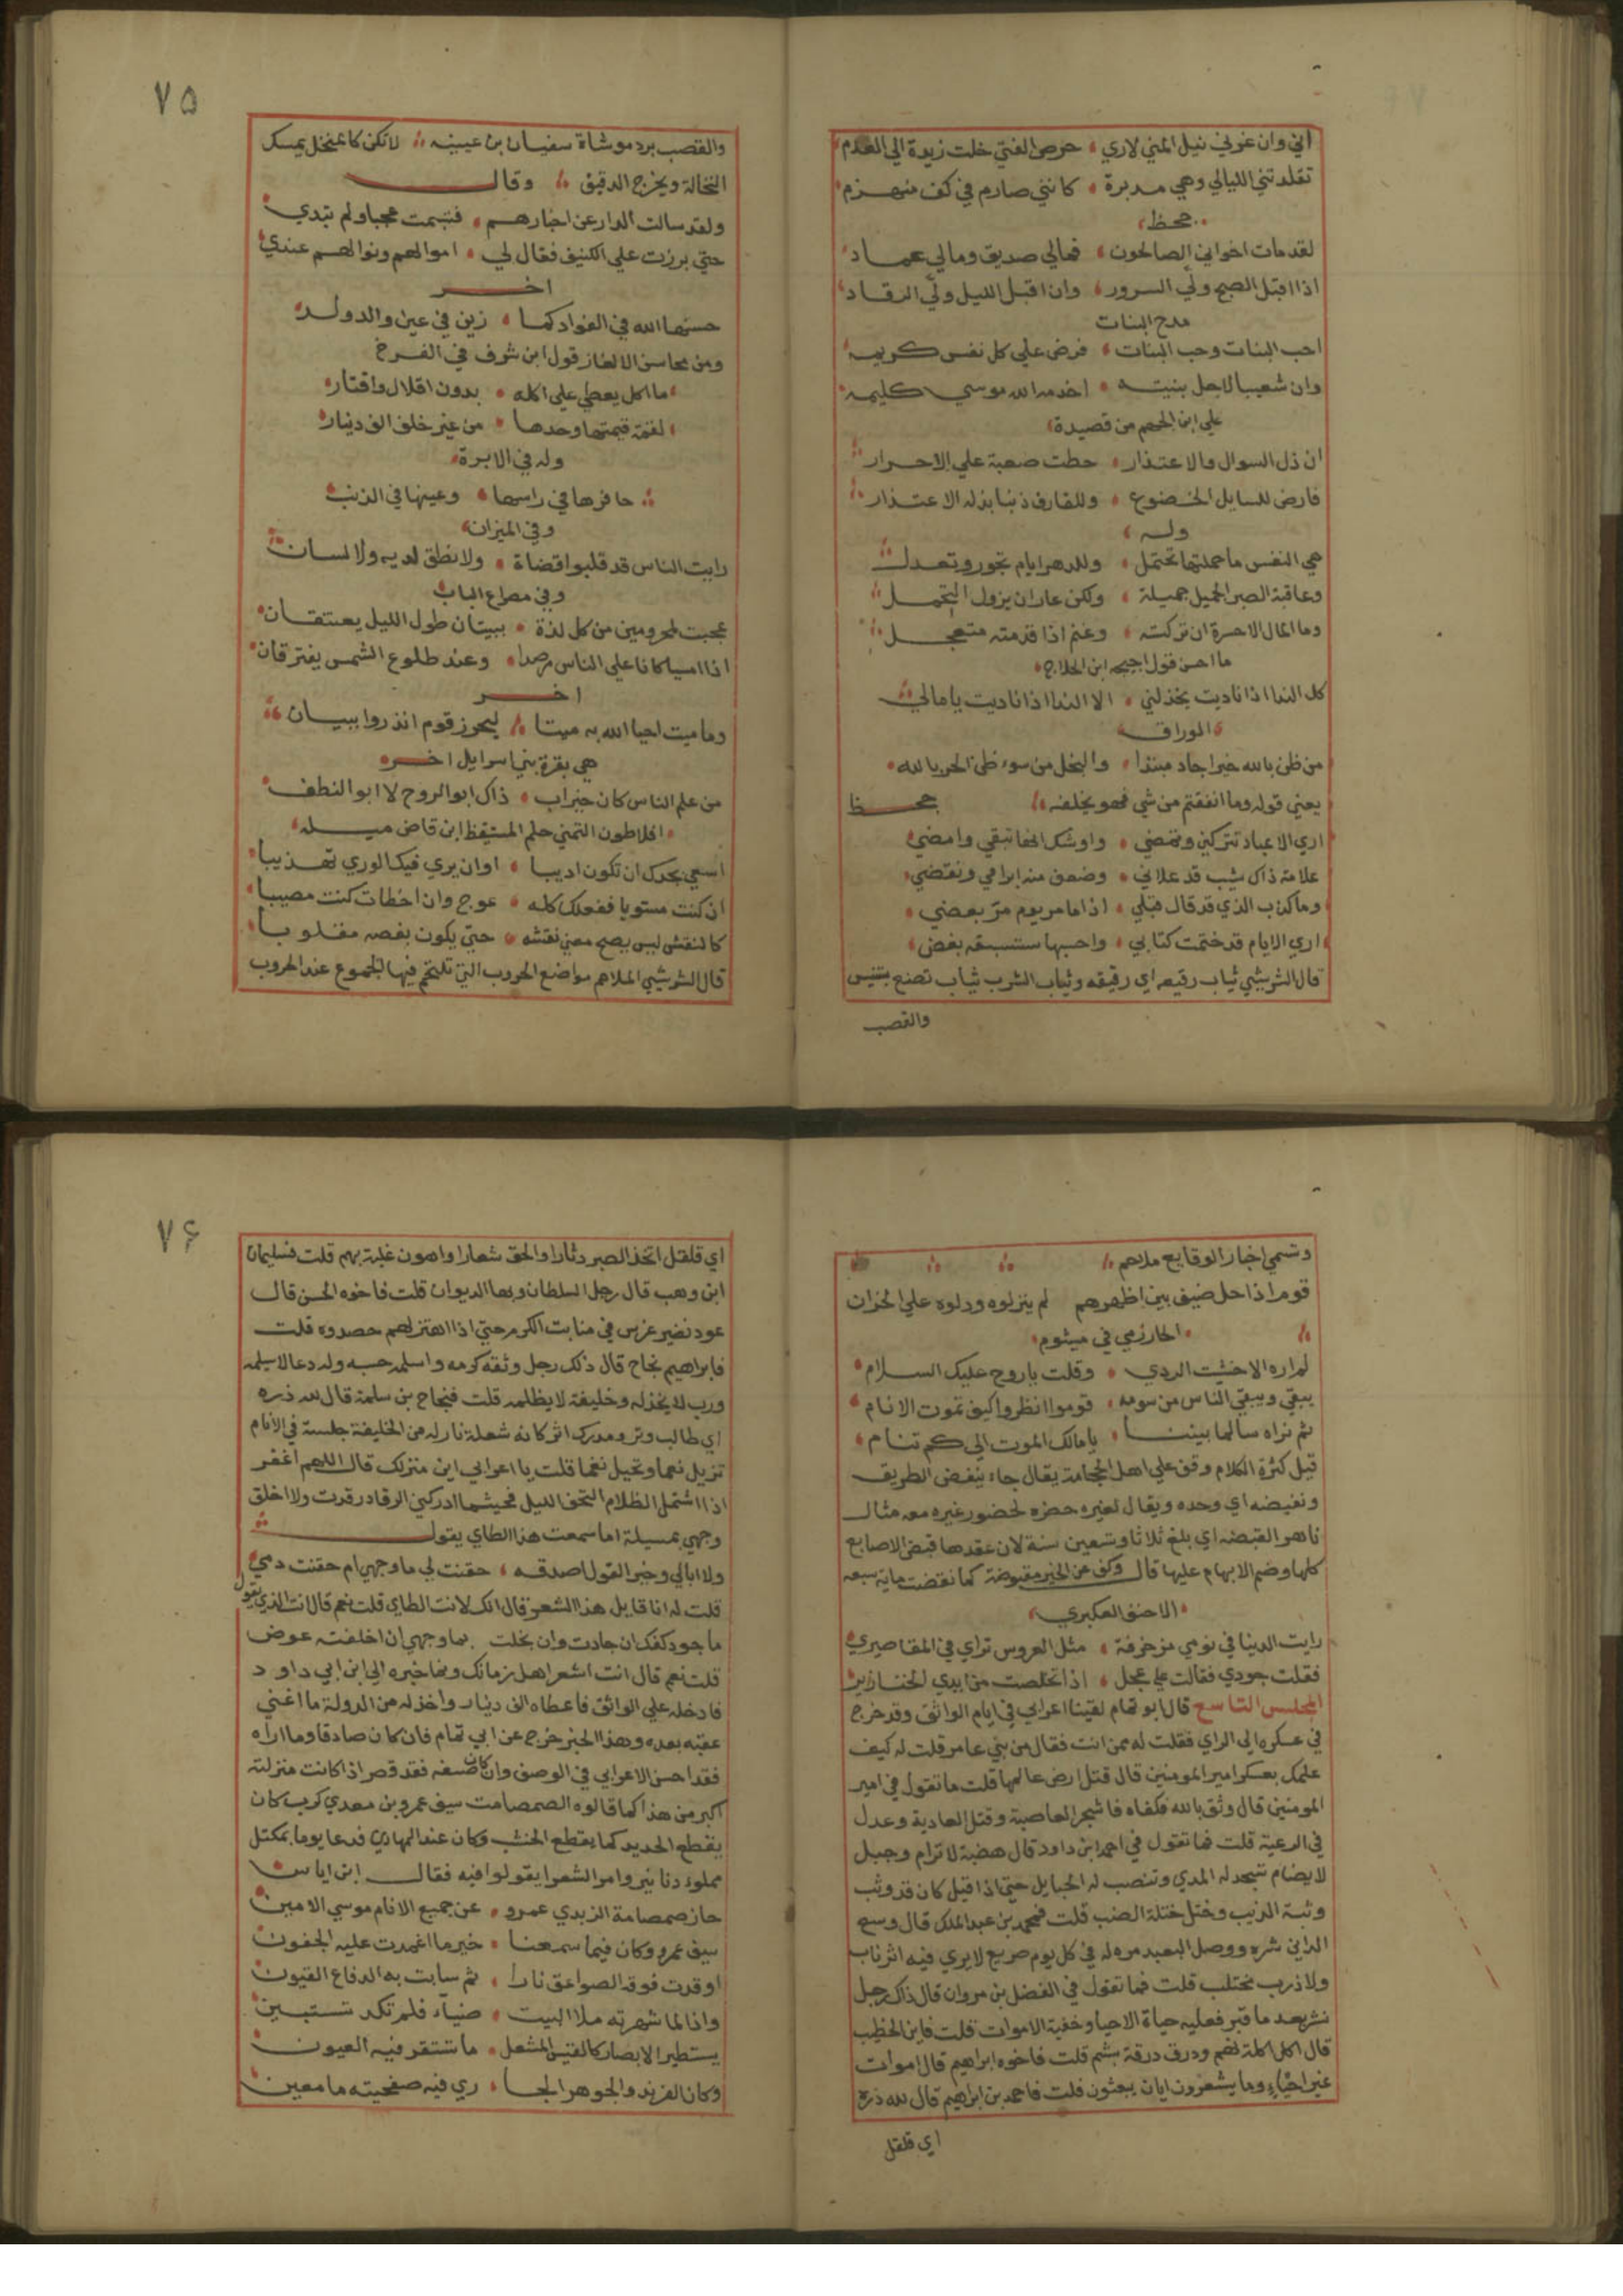 اني وان غرني نيل المني لاري ، حرص الفتي خلت زيدة الي العدم
تقلدتني الليالي وهي مدبرة ، كانني صارم في كف منهزم
جحظ
لقد مات اخواني الصالحون ، فمالي صديق ومالي عماد
اذا اقبل الصبح ولي السرور ، وان اقبل الليل ولي الرقاد
مدح البنات
احب البنات وحب البنات ، فرض علي كل نفس كريمه
وان شعيبا لاجل بنيته ، اخدمه الله موسي كليمه
علي ابن الجهم من قصيدة
ان ذل السوال والاعتذار ، خطت صعبة علي الاحرار
فارض للسايل الخضوع ، وللقارف ذنبا بذلة الاعتذار
وله
هي النفس ما حملتها تحتمل ، وللدهر ايام تجور وتعدل
وعاقبة الصبر الجميل جميلة ، ولكن عارا ن يزول التجمل
وما المال الا حسرة ان تركته ، وغنم اذا قدمته متعجل
ما احسن قول اجيحه ابن الحلاج
كل الندا اذا ناديت يخذلني ، الا الندا اذا ناديت يا مالي
الوراق
من ظن بالله خيرا جاد مبتدا ، والبخل من سوء ظن الحر بالله
يعني قوله وما انفقتم من شي فهو يخلفه جحظ
اري الاعياد تتركني وتمضي ، واوشك انها تبقي وامضي
علامة ذاك شيب قد علاني ، وضعف منه ابرامي ونقضي
وما كذب الذي قد قال قبلي ، اذا ما مر يوم مر بعضي
اري الايام قد ختمت كتابي ، واحسبها ستتبعه بفض
قال الشريشي ثياب رقيعه اي رقيقه وثياب الشرب ثياب تصنع بتنيس
والقصب
٧٥
والقصب برد موشاة سفيان بن عيينه لا تكن كالمنخل يمسك
النخالة ويخرج الدقيق وقال
ولقد سالت الدار عن اخبارهم ، فتبسمت عجبا ولم تبدي
حتي برزت علي الكنيف فقال لي ، اموالهم ونوالهم عندي
اخر
حسنها الله في الفواد كما ، زين في عين والد ولد
ومن محاسن الالغاز قول ابن شرف في الفرخ
ما اكل يعطي علي اكله ، بدون اقلال واقتار
لقمة قيمتها وحدها ، من غير خلف الف دينار
وله في الابرة
حافرها في راسها ، وعينها في الذنب
وفي الميزان
رايت الناس قد قلبوا قضاة ، ولا نطق لديه ولا لسان
وفي مصراع الباب
عجبت لمحرومين من كل لذة ، يبيتان طول الليل يعتنقان
اذا امسيا كانا علي الناس مرصدا ، وعند طلوع الشمس يفترقان
اخر
وما ميت احيا الله به ميتا ، ليحوز قوم انذروا ببيان
هي بقرة بني اسرايل اخر
من علم الناس كان خير اب ، ذاك ابو الروح لا ابو النطف
افلاطون التمني حلم المستيقظ ابن قاضي ميله
اسعي بجدك ان تكون اديبا ، او ان يري فيك الوري تهذيبا
ان كنت مستويا ففعلك كله ، عوج وان اخطات كنت مصيبا
كالنقش ليس يصح معني نقشه ، حتي يكون بفصه مقلوبا
قال الشريشي الملاحم مواضع الحروب التي تلتحم فيها الجموع عند الحروب
وتسمي اخبار الوقايع ملاحم
قوم اذا حل ضيف بين اظهرهم لم ينزلوه ودلوه علي الخزان
الخارزمي في ميشوم
لم اره الا خشيت الردي ، وقلت يا روح عليك السلام
يبقي ويبقي الناس من شومه ، قوموا انظروا كيف تموت الانام
ثم نراه سالما بيننا ، يا مالك الموت الي كم تنام
قيل كثرة الكلام وقف علي اهل الحجامة يقال جاء ينفض الطريق
ونفيضه اي وحده ويقال لغيره حضره لحضور غيره معه مثال
ناهو القبضه اي بلغ ثلاثا وتسعين سنة لان عقدها قبض الاصابع
كلها وضم الابهام عليها قال وكف عن الخير مقبوضة كما نقضت ماية سبعه
الاحنف العكبري
رايت الدنيا في نومي مزخرفة ، مثل العروس تراي في المقاصيري
فقلت جودي فقالت علي عجل ، اذا تخلصت من ايدي الخنازير
المجلس التاسع قال ابو تمام لقينا اعرابي في ايام الواثق وقد خرج
في عسكره الي الراي فقلت له ممن انت فقال من بني عامر قلت له كيف
علمك بعسكر امير المومنين قال قتل ارض عالمها قلت ما تقول في امير
المومنين قال وثق بالله فكفاه فاشجر العاصية وقتل العادية وعدل
في الرعية قلت فما تقول في احمد ابن داود قال هضبة لا ترام وجبل
لا يضام تشحد له المدي وتنصب له الحبايل حتي اذا قيل كان قد وثب
وثبة الذيب وختل ختلة الضب قلت فمحمد بن عبد الملك قال وسع
الداني شره ووصل البعيد مره له في كل يوم صريع لا يري فيه اثر ناب
ولا ذرب مختلب قلت فما تقول في الفضل بن مروان قال ذاك رجل
نشر بعد ما قبر فعليه حياة الاحيا وخفية الاموات قلت فابن الخطيب
قال اكل اكلة نهم وذرق ذرقة بشم قلت فاخوه ابراهيم قال اموات
غير احياء وما يشعرون ايان يبعثون قلت فاحمد بن ابراهيم قال لله دره
اي قلقل
٧۶
اي قلقل اتخذ الصبر دثارا والحق شعارا واهون غلبة بهم قلت فسليمان
ابن وهب قال رجل السلطان وبها الديوان قلت فاخوه الحسن قال
عود نضير غرس في منابت الكرم حتي اذا اهتز لهم حصدوه قلت
فابراهيم نجاح قال ذلك رجل وثقه كرمه واسلمه حسبه وله دعا لا يسلمه
ورب لا يخذله وخليفة لا يظلمه قلت فنجاح بن سلمة قال لله ذره
اي طالب وتر ومدرك اثر كانه شعلة نار له من الخليفة جلسة في الانام
تزيل نعما وتحيل نقما قلت يا اعرابي اين منزلك قال اللهم اغفر
اذا اشتمل الظلام التحف الليل فحيثما ادركني الرقاد رقدت ولا اخلق
وجهي بمسيلة اما سمعت هذا الطاي يقول
ولا ابالي وخير القول اصدقه ، حقنت لي ما وجهي ام حقنت دمي
قلت له انا قايل هذا الشعر قال انك لانت الطاي قلت نعم قال انت الذي يقول
ما جود كفك ان جادت وان بخلت بما وجهي ان اخلفته عوض
قلت نعم قال انت اشعر اهل زمانك ونما خبره الي ابن ابي داود
فادخله علي الواثق فاعطاه الف دينار واخذ له من الدولة ما اغني
عقبه بعده وهذا الخبر خرج عن ابي تمام فان كان صادقا وما اراه
فقد احسن الاعرابي في الوصف وان كان ضعفه فقد قصر اذ كانت منزلته
اكبر من هذا كما قالوه الصمصامت سيف عمرو بن معدي كرب كان
يقطع الحديد كما يقطع الخشب وكان عند الهادي فدعا يوما بمكتل
مملوء دنانير وامر الشعرا يقولوا فيه فقال ابن اياس
حاز صمصامة الزبيدي عمرو ، عن جميع الانام موسي الامين
سيف عمرو وكان فيما سمعنا ، خير ما اغمدت عليه الجفون
اوقدت فوقه الصواعق نارا ، ثم سابت به الدفاع القيون
واذا ما شهرته ملا البيت ، ضياء فلم تكد تستبين
يستطير الابصار كالقبس المشعل ، ما تستقر فيه العيون
وكان الفرند والجوهر الجا ، ري في صفحيته ما معين